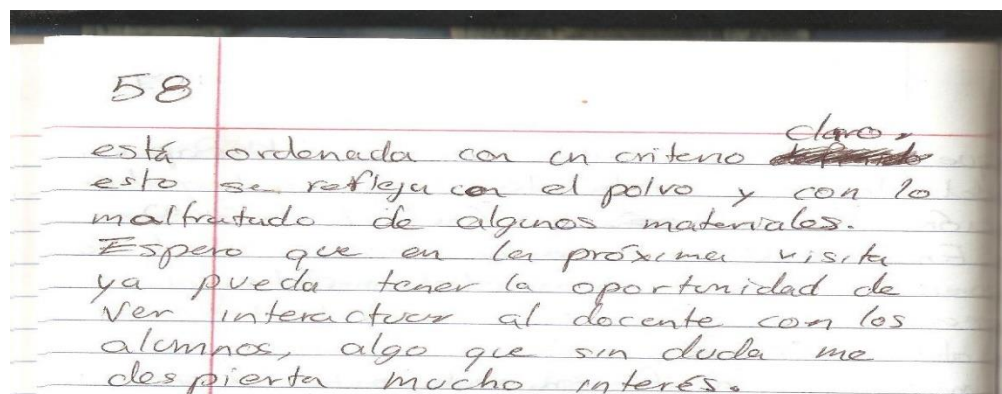 58
claro,
está ordenada con un criterio
esto se refleja con el polvo y con lo
maltratado de algunos materiales.
Espero que en la próxima visita
ya pueda tener la oportunidad de
ver interactuar al docente con los
alumnos, algo que sin duda me
despierta mucho interés.